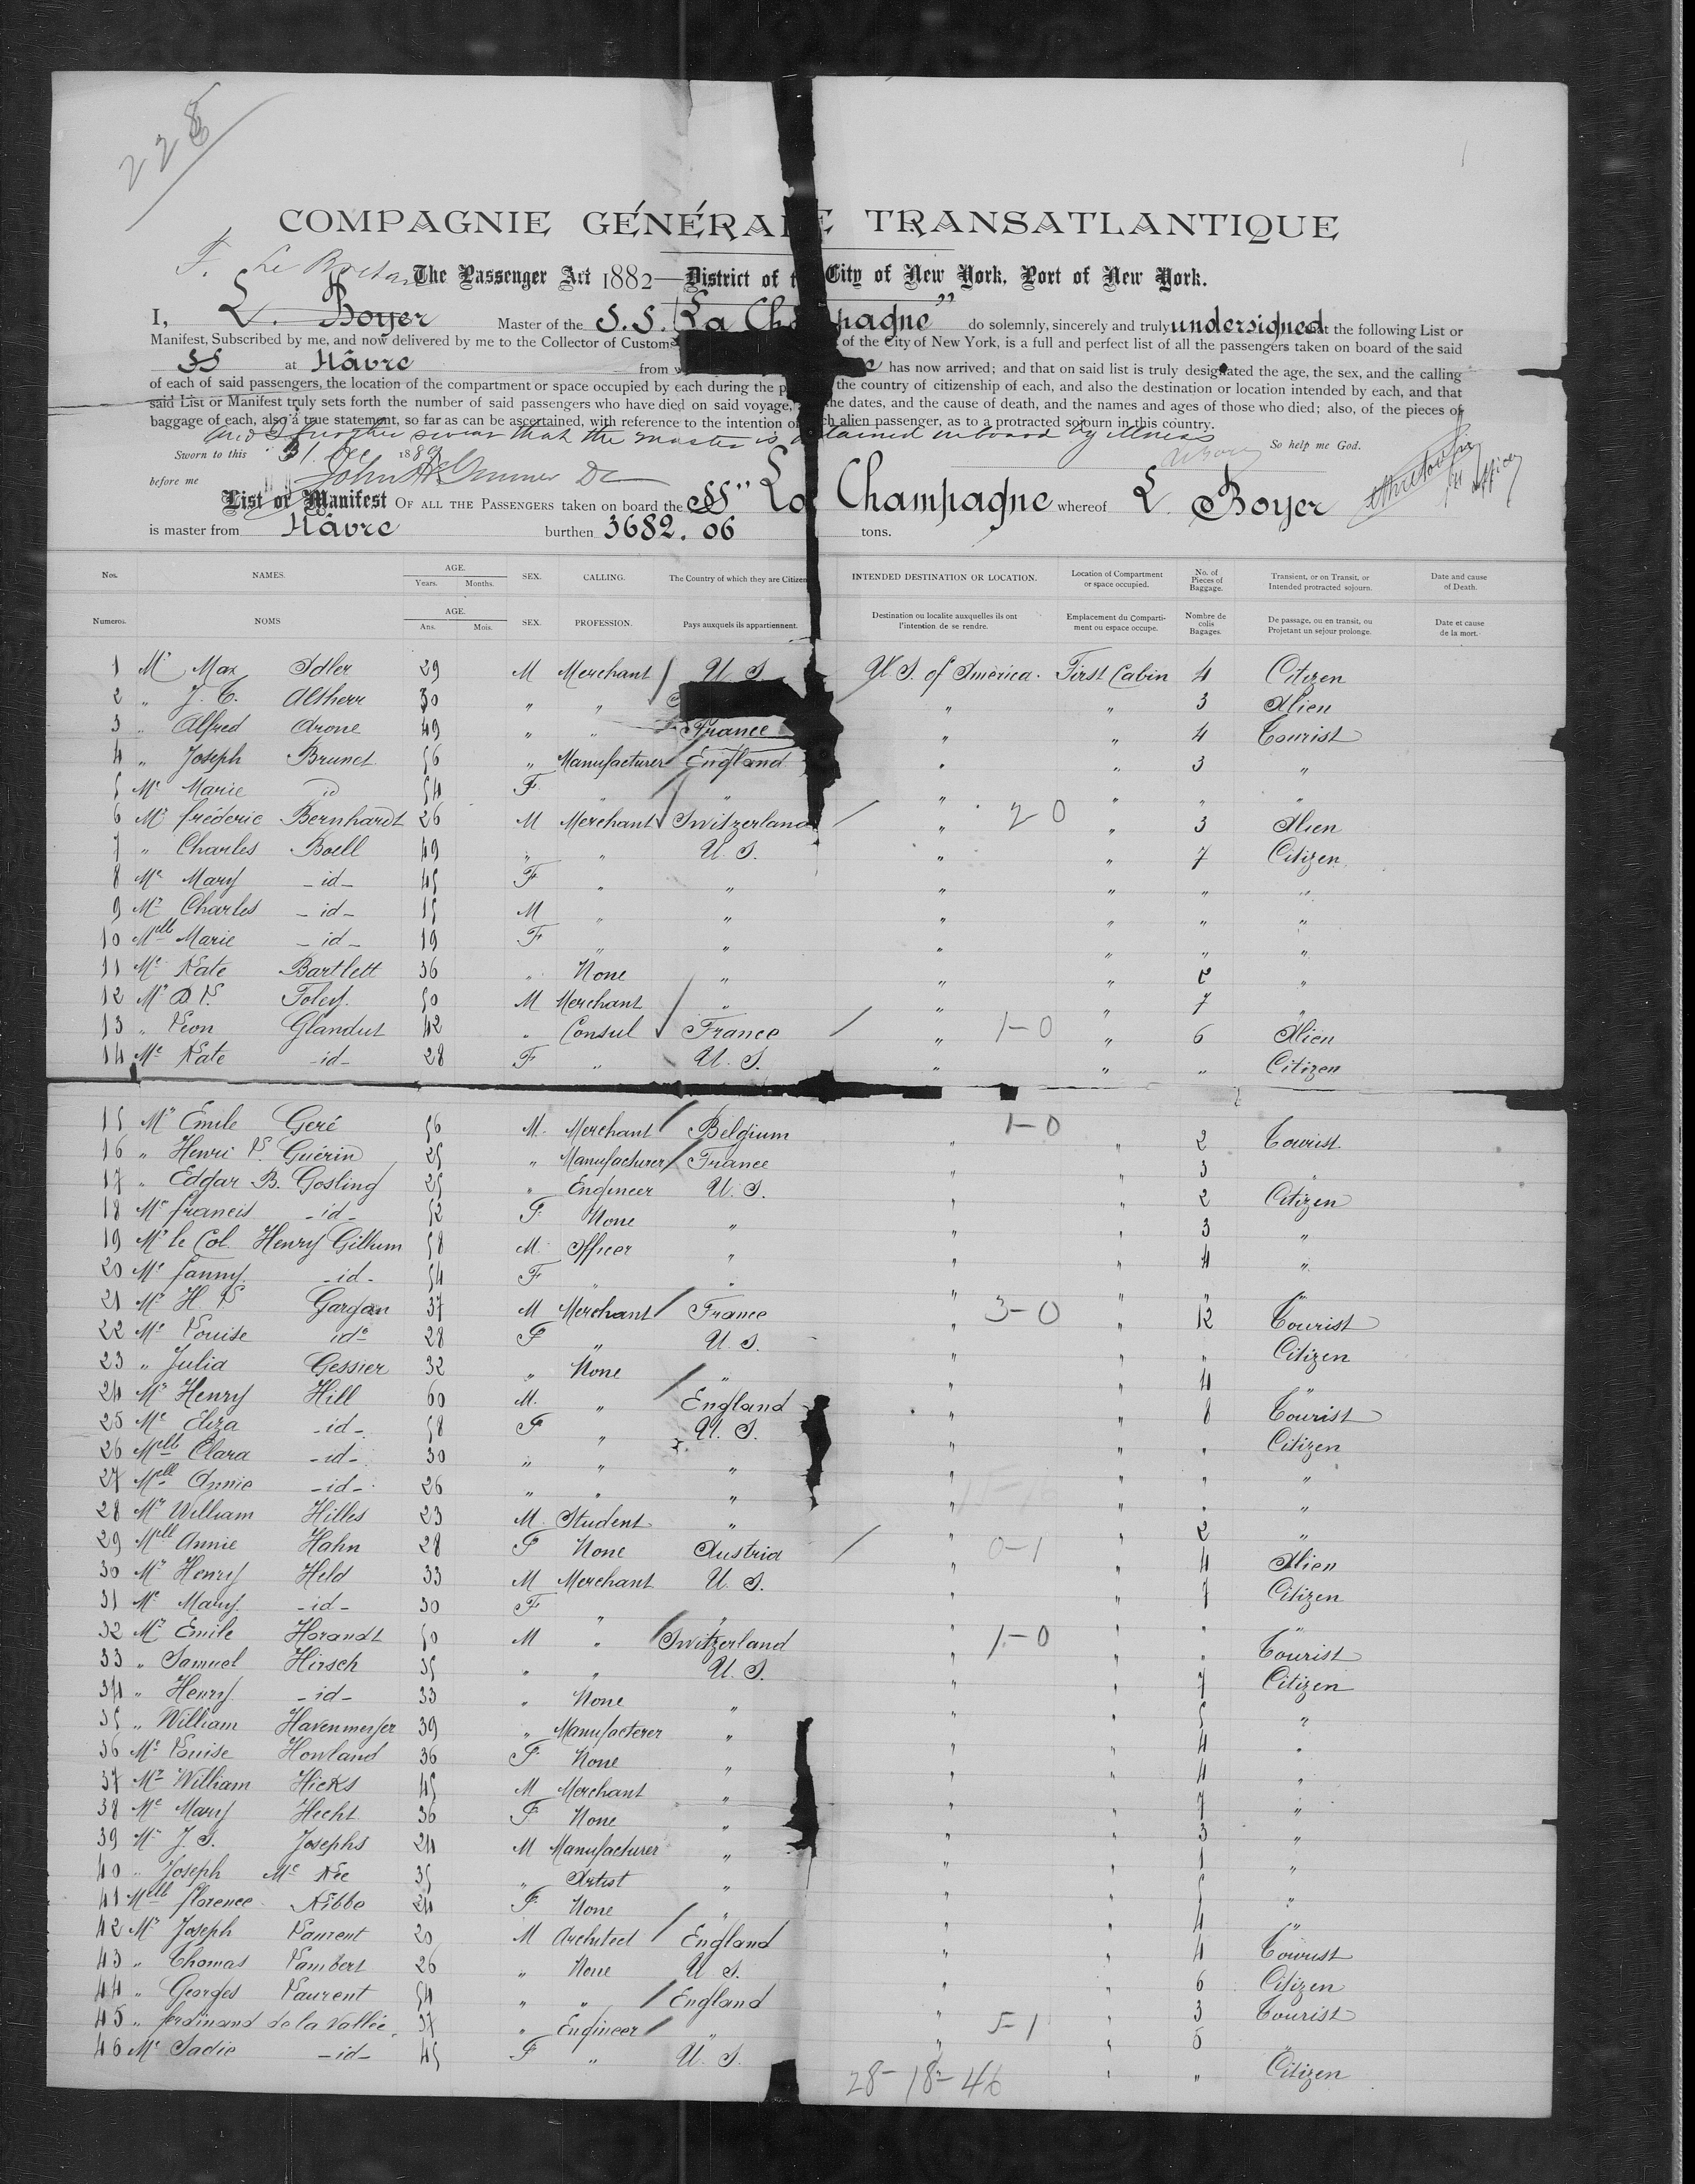 228
COMPAGNIE GÉNÉRALE TRANSATLANTIQUE
F. Le Breton
The Passenger Act 1882—District of the City of New York, Port of New York.
I, L. Boyer Master of the S.S. "La Champagne" do solemnly, sincerely and truly undersigned that the following List or
Manifest, Subscribed by me, and now delivered by me to the Collector of Customs of the City of New York, is a full and perfect list of all the passengers taken on board of the said
SS at Hâvre from has now arrived; and that on said list is truly designated the age, the sex, and the calling
of each of said passengers, the location of the compartment or space occupied by each during the the country of citizenship of each, and also the destination or location intended by each, and that
said List or Manifest truly sets forth the number of said passengers who have died on said voyage, the dates, and the cause of death, and the names and ages of those who died; also, of the pieces of
baggage of each, also a true statement, so far as can be ascertained, with reference to the intention of each alien passenger, as to a protracted sojourn in this country.
and I further swear that the master is detained onboard by illness
So help me God.
Sworn to this 31 Dec 1889
before me
List or Manifest OF ALL THE PASSENGERS taken on board the SS "La Champagne whereof L. Boyer
is master from Hâvre burthen 3682.06 tons.
Nos. NAMES. AGE. Years. Months. SEX. CALLING. The Country of which they are Citizens INTENDED DESTINATION OR LOCATION. Location of Compartment or space occupied. No. of Pieces of Baggage. Transient, or on Transit, or Intended protracted sojourn. Date and cause of Death.
Numeros. NOMS AGE. Ans. Mois. SEX. PROFESSION. Pays auxquels ils appartiennent. Destination ou localite auxquelles ils ont l'intention de se rendre. Emplacement du Compartiment ou espace occupe. Nombre de colis Bagages. De passage, ou en transit, ou Projetant un sejour prolonge. Date et cause de la mort.
1 Mr Max Adler 29 M Merchant U S U S. of America. First Cabin 4 Citizen
2 " J. C. Altherr 30 " " " " 3 Alien
3 " Alfred Arone 49 " " France " " 4 Tourist
4 " Joseph Brunet 56 " Manufacturer England " " 3 "
5 Me Marie id 54 F " " " " " "
6 Mr fréderic Bernhardt 26 M Merchant Switzerland " 2 0 " 3 Alien
7 " Charles Boell 49 " " U. S. " " 7 Citizen
8 Me Mary -id- 45 F " " " " " "
9 Mr Charles -id- 15 M " " " " " "
10 Melle Marie -id- 19 F " " " " " "
11 Me Kate Bartlett 36 " None " " " 2 "
12 Mr D. L. Foley. 50 M Merchant " " " 7 "
13 " Léon Glandut 42 " Consul France " 1-0 " 6 Alien
14 Me Kate -id- 28 F " U. S. " " " Citizen
15 Mr Emile Geré 56 M. Merchant Belgium " 1-0 " 2 Tourist
16 " Henri L. Guérin 25 " Manufacturer France " " 3 "
17 " Edgar B. Gosling 25 " Engineer U. S. " " 2 Citizen
18 Me francis -id- 52 F. None " " " 3 "
19 Mr le Col. Henry Gillum 58 M. Officer " " " 4 "
20 Me fanny -id- 54 F " " " " " "
21 Mr H. L. Gargan 37 M Merchant France " 3-0 " 12 Tourist
22 Me Louise ide 28 F " U. S. " " " Citizen
23 " Julia Gessier 32 " None " " " 4 "
24 Mr Henry Hill 60 M. " England " " 8 Tourist
25 Me Eliza -id- 58 F " U. S. " " " Citizen
26 Melle Clara -id- 30 " " " " " " "
27 Melle Annie -id- 26 " " " " " " "
28 Mr William Hilles 23 M. Student " " " 2 "
29 Melle Annie Hahn 28 F None Austria " 0-1 " 4 Alien
30 Mr Henry Held 33 M Merchant U. S. " " 7 Citizen
31 Me Mary. -id- 30 F " " " " " "
32 Mr Emile Horandt 50 M " Switzerland " 1-0 " " Tourist
33 " Samuel Hirsch 35 " " U. S. " " 7 Citizen
34 " Henry -id- 33 " None " " " 5 "
35 " William Havenmeyer 39 " Manufacterer " " " 4 "
36 Me Louise Howland 36 F None " " " 4 "
37 Mr William Hicks 45 M Merchant " " " 7 "
38 Me Mary Hecht 36 F None " " " 3 "
39 Mr J. S. Josephs 24 M Manufacturer " " " 1 "
40 " Joseph Mc Kee 35 " Artist " " " 5 "
41 Melle florence Kibbe 24 F None " " " 4 "
42 Mr Joseph Laurent 20 M Architect England " " 4 Tourist
43 " Thomas Lambert 26 " None U S. " " 6 Citizen
44 " Georges Laurent 54 " " England " " 3 Tourist
45 " ferdinand de la Vallée 37 " Engineer " " 5-1 " 6 "
46 Me Sadie -id- 45 F " U. S. " " " Citizen
28-18-46